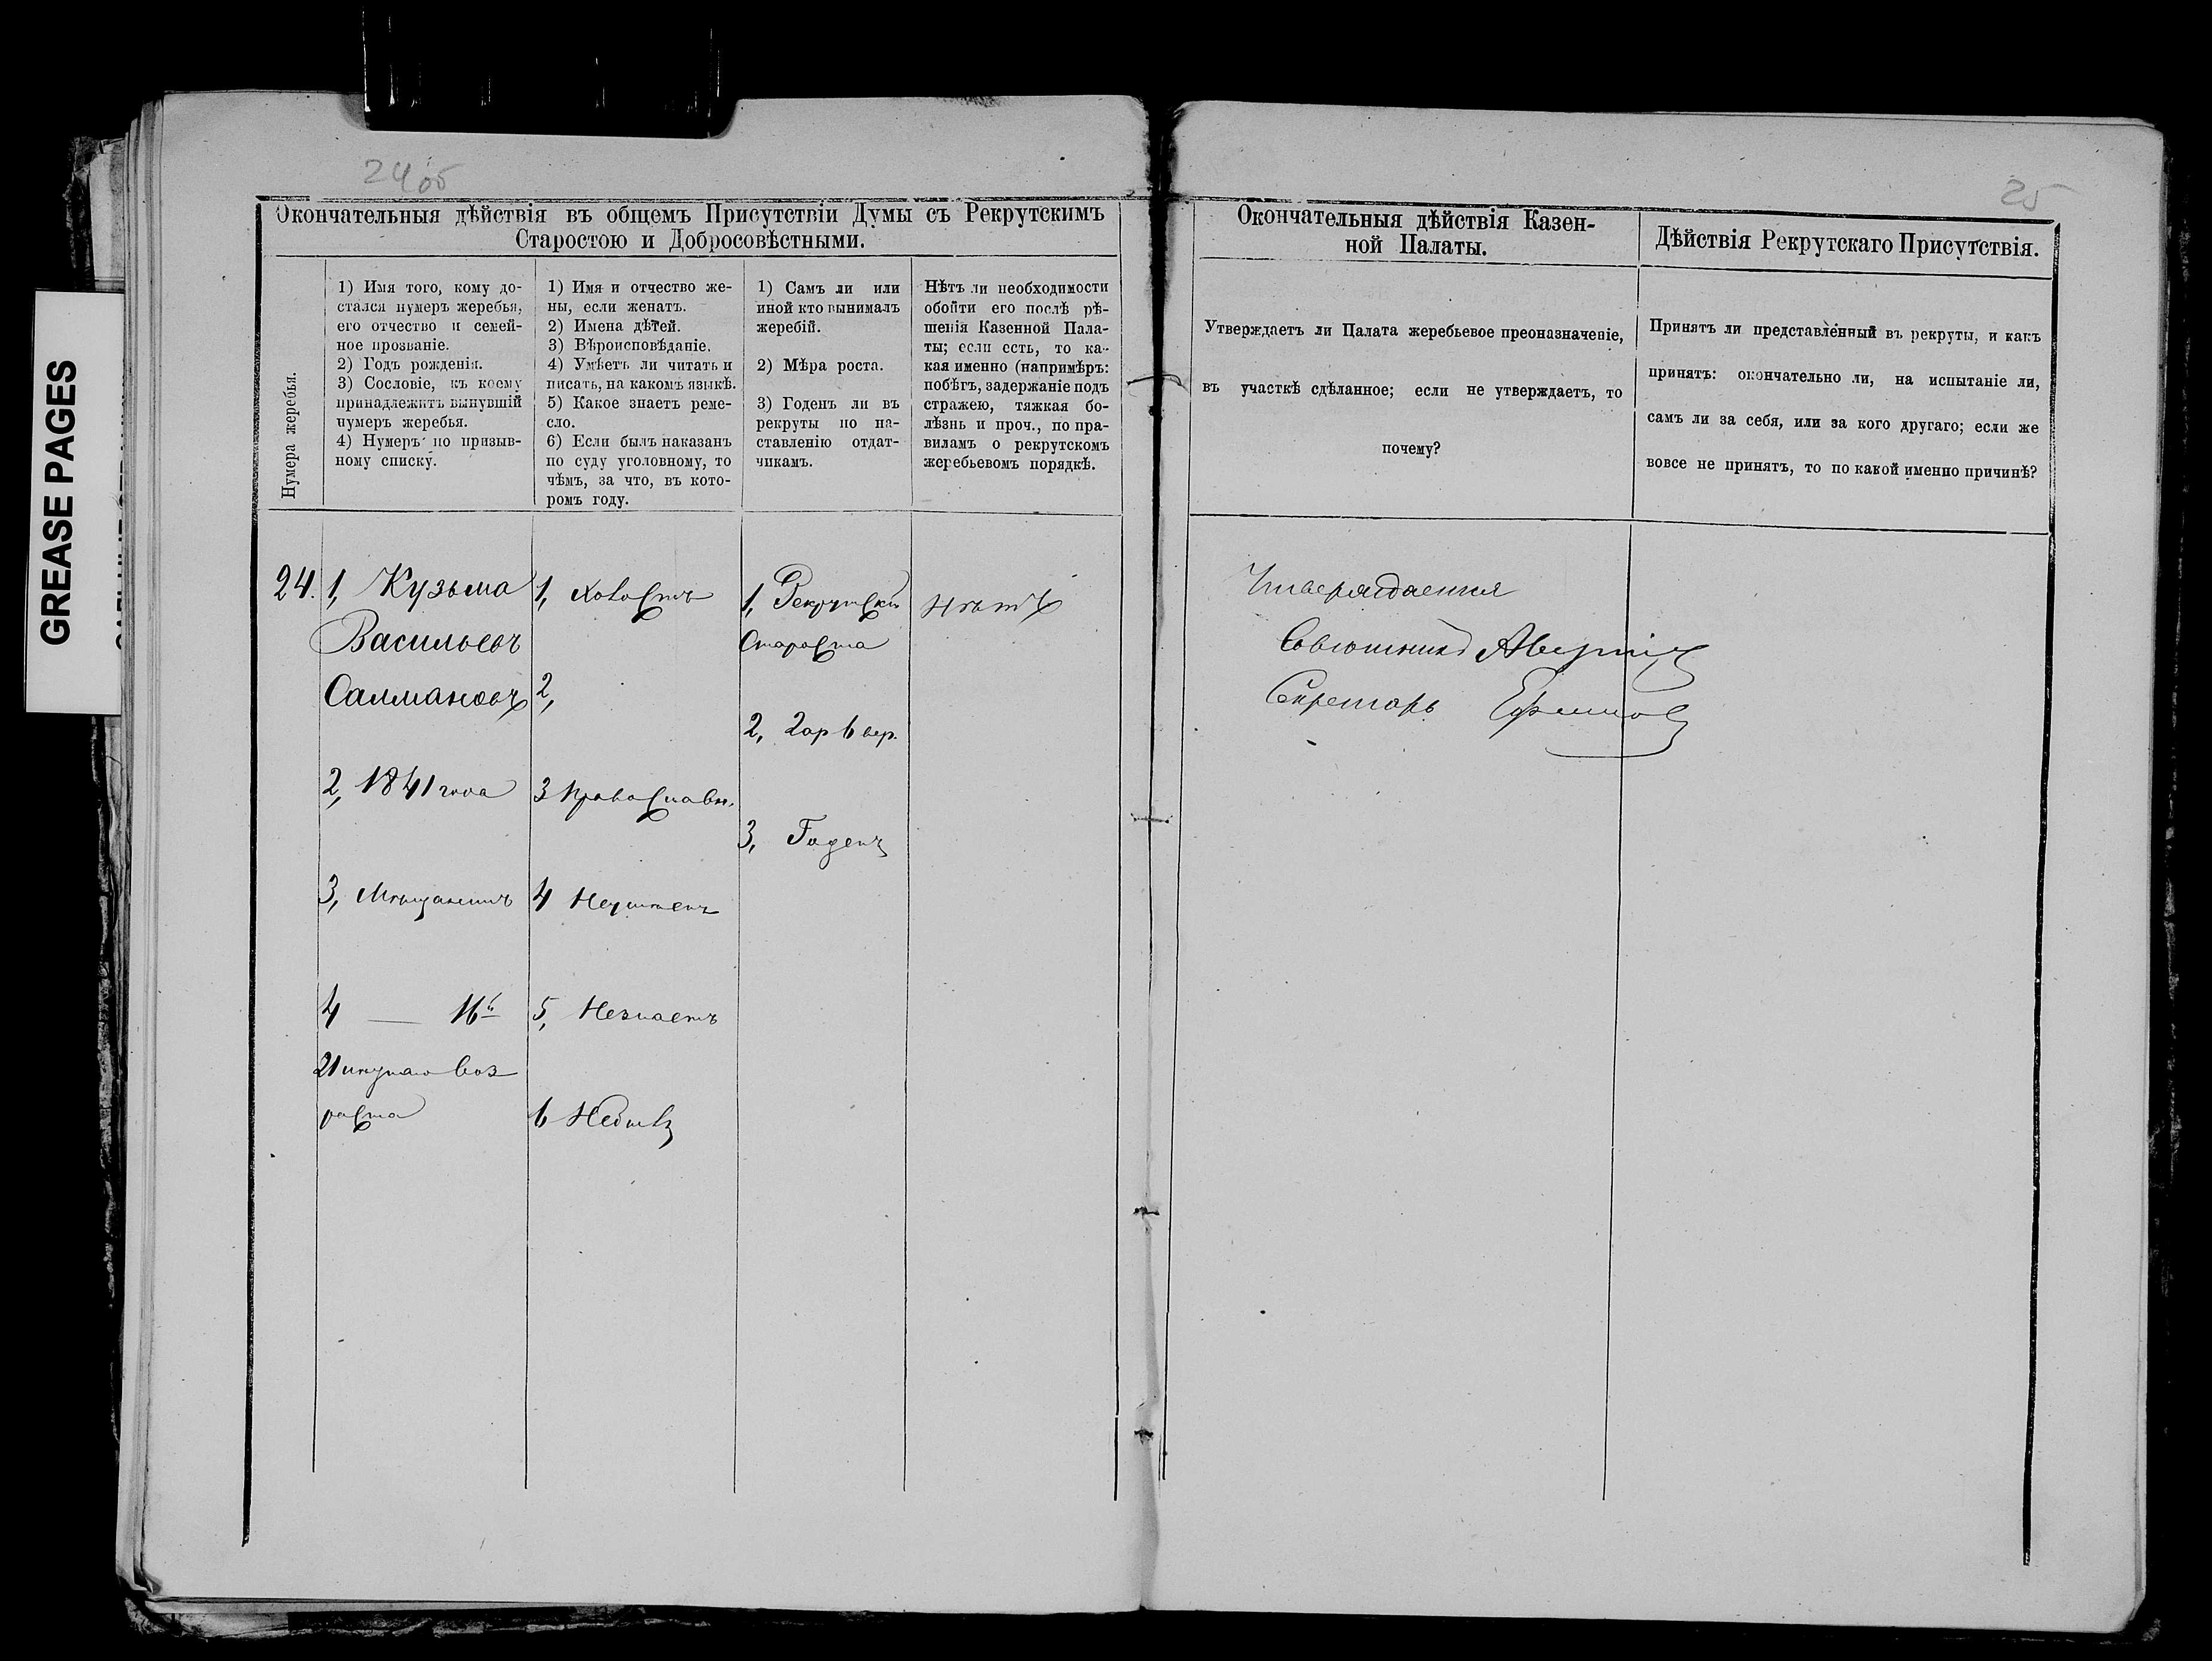 GREASE PAGES
24об
25
Окончательныя дѣйствія въ общемъ Присутствіи Думы съ Рекрутскимъ
Старостою и Добросовѣстными.
Нумера жеребья.
1) Имя того, кому до-
стался нумеръ жеребья,
его отчество и семей-
ное прозваніе.
2) Годъ рожденія.
3) Сословіе, къ коему
принадлежитъ вынувшій
нумеръ жеребья.
4) Нумеръ по призыв-
ному списку.
1) Имя и отчество же-
ны, если женатъ.
2) Имена дѣтей.
3) Вѣроисповѣданіе.
4) Умѣетъ ли читать и
писать, на какомъ языкѣ.
5) Какое знаетъ реме-
сло.
6) Если былъ наказанъ
по суду уголовному, то
чѣмъ, за что, въ кото-
ромъ году.
1) Самъ ли или
иной кто вынималъ
жеребій.
2) Мѣра роста.
3) Годенъ ли въ
рекруты по на-
ставленію отдат-
чикамъ.
Нѣтъ ли необходимости
обойти его послѣ рѣ-
шенія Казенной Пала-
ты; если есть, то ка-
кая именно (напримѣръ:
побѣгъ, задержаніе подъ
стражею, тяжкая бо-
лѣзнь и проч., по пра-
виламъ о рекрутскомъ
жеребьевомъ порядкѣ.
24.
1, Кузьма
Васильевъ
Салмановъ
2, 1841 года
3, Мѣщанинъ
4 — 16й
21 возраста
1, холостъ
2,
3 Православн.
4 Неумѣетъ
5, Незнаетъ
6 Небылъ
1, Рекрутскій
Староста
2, 2 ар 6 вер.
3, Годенъ
нѣтъ
Окончательныя дѣйствія Казен-
ной Палаты.
Утверждаетъ ли Палата жеребьевое преоназначеніе,
въ участкѣ сдѣланное; если не утверждаетъ, то
почему?
Утверждается
Совѣтникъ
Секретарь Ефимовъ
Дѣйствія Рекрутскаго Присутствія.
Принятъ ли представленный въ рекруты, и какъ
принятъ: окончательно ли, на испытаніе ли,
самъ ли за себя, или за кого другаго; если же
вовсе не принятъ, то по какой именно причинѣ?